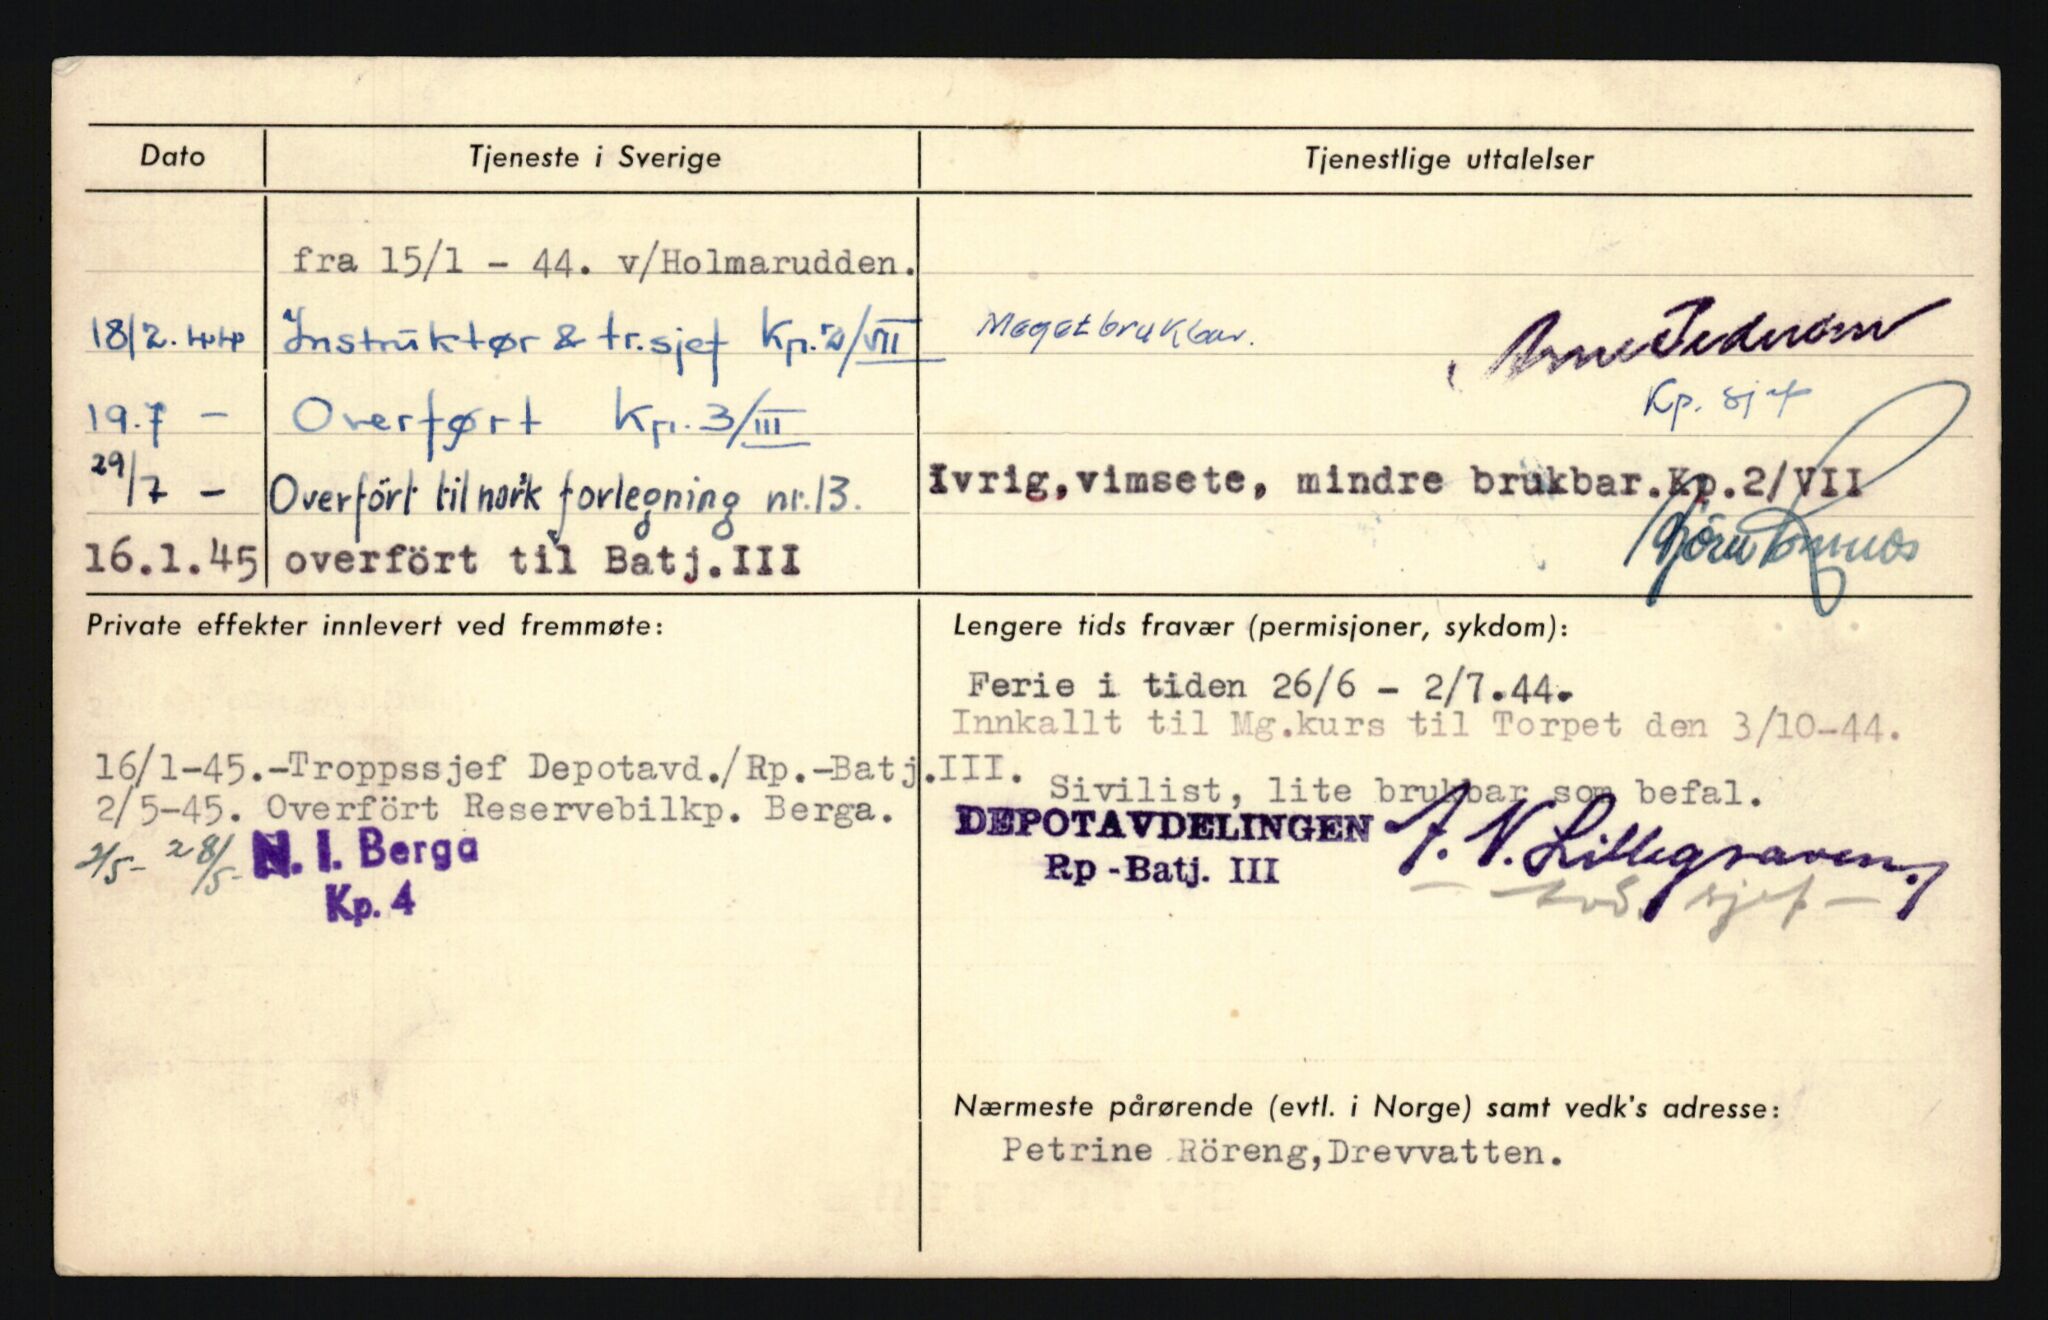 Dato Tjeneste i Sverige Tjenestlige uttalelser
fra 15/1 - 44. v/Holmarudden.
18/2. 44 Instruktør & tr.sjef Kp. 2/VII Meget brukbar. Arne Pedersen
Kp. sjef
19.7 - Overført Kp. 3/III
29/7 - Overført til norsk forlegning nr. 13. Ivrig, vimsete, mindre brukbar. Kp.2/VII
16.1.45 overfört til Batj.III Bjørn
Private effekter innlevert ved fremmøte:
16/1-45.-Troppssjef Depotavd./Rp.-Batj.III.
2/5-45. Overfört Reservebilkp. Berga.
2/5- 28/5- N. I. Berga
Kp. 4
Lengere tids fravær (permisjoner, sykdom):
Ferie i tiden 26/6 - 2/7.44.
Innkallt til Mg.kurs til Torpet den 3/10-44.
Sivilist, lite brukbar som befal.
DEPOTAVDELINGEN A. N. Lillegraven.
Rp-Batj. III - avd. sjef -
Nærmeste pårørende (evtl. i Norge) samt vedk's adresse:
Petrine Röreng, Drevvatten.